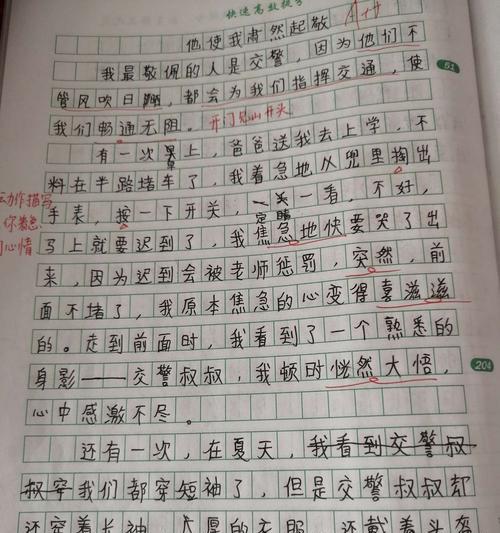 快速高效提
A++
他使我肃然起敬
我最敬佩的人是交警，因为他们不
管风吹日晒，都会为我们指挥交通，使
51
我们畅通无阻。开门见山开头
有一次早上，爸爸送我去上学，不
料在半路堵车了，我着急地从兜里掏出
动作描写
手表，按一下开关，一看，不好，
定睛
你着急
心情
马上就要迟到了，我焦急地快要哭了出
来，因为迟到会被老师惩罚，突然，前
面不堵了，我原本焦急的心变得喜滋滋
的。走到前面时，我看到了一个熟悉的
身影——交警叔叔，我顿时恍然大悟，
204
心中感激不尽。
还有一次，在夏天，我看到交警叔
叔穿我们都穿短袖了，但是交警叔叔却
还穿着长袖，厚的衣服，还戴着头盔